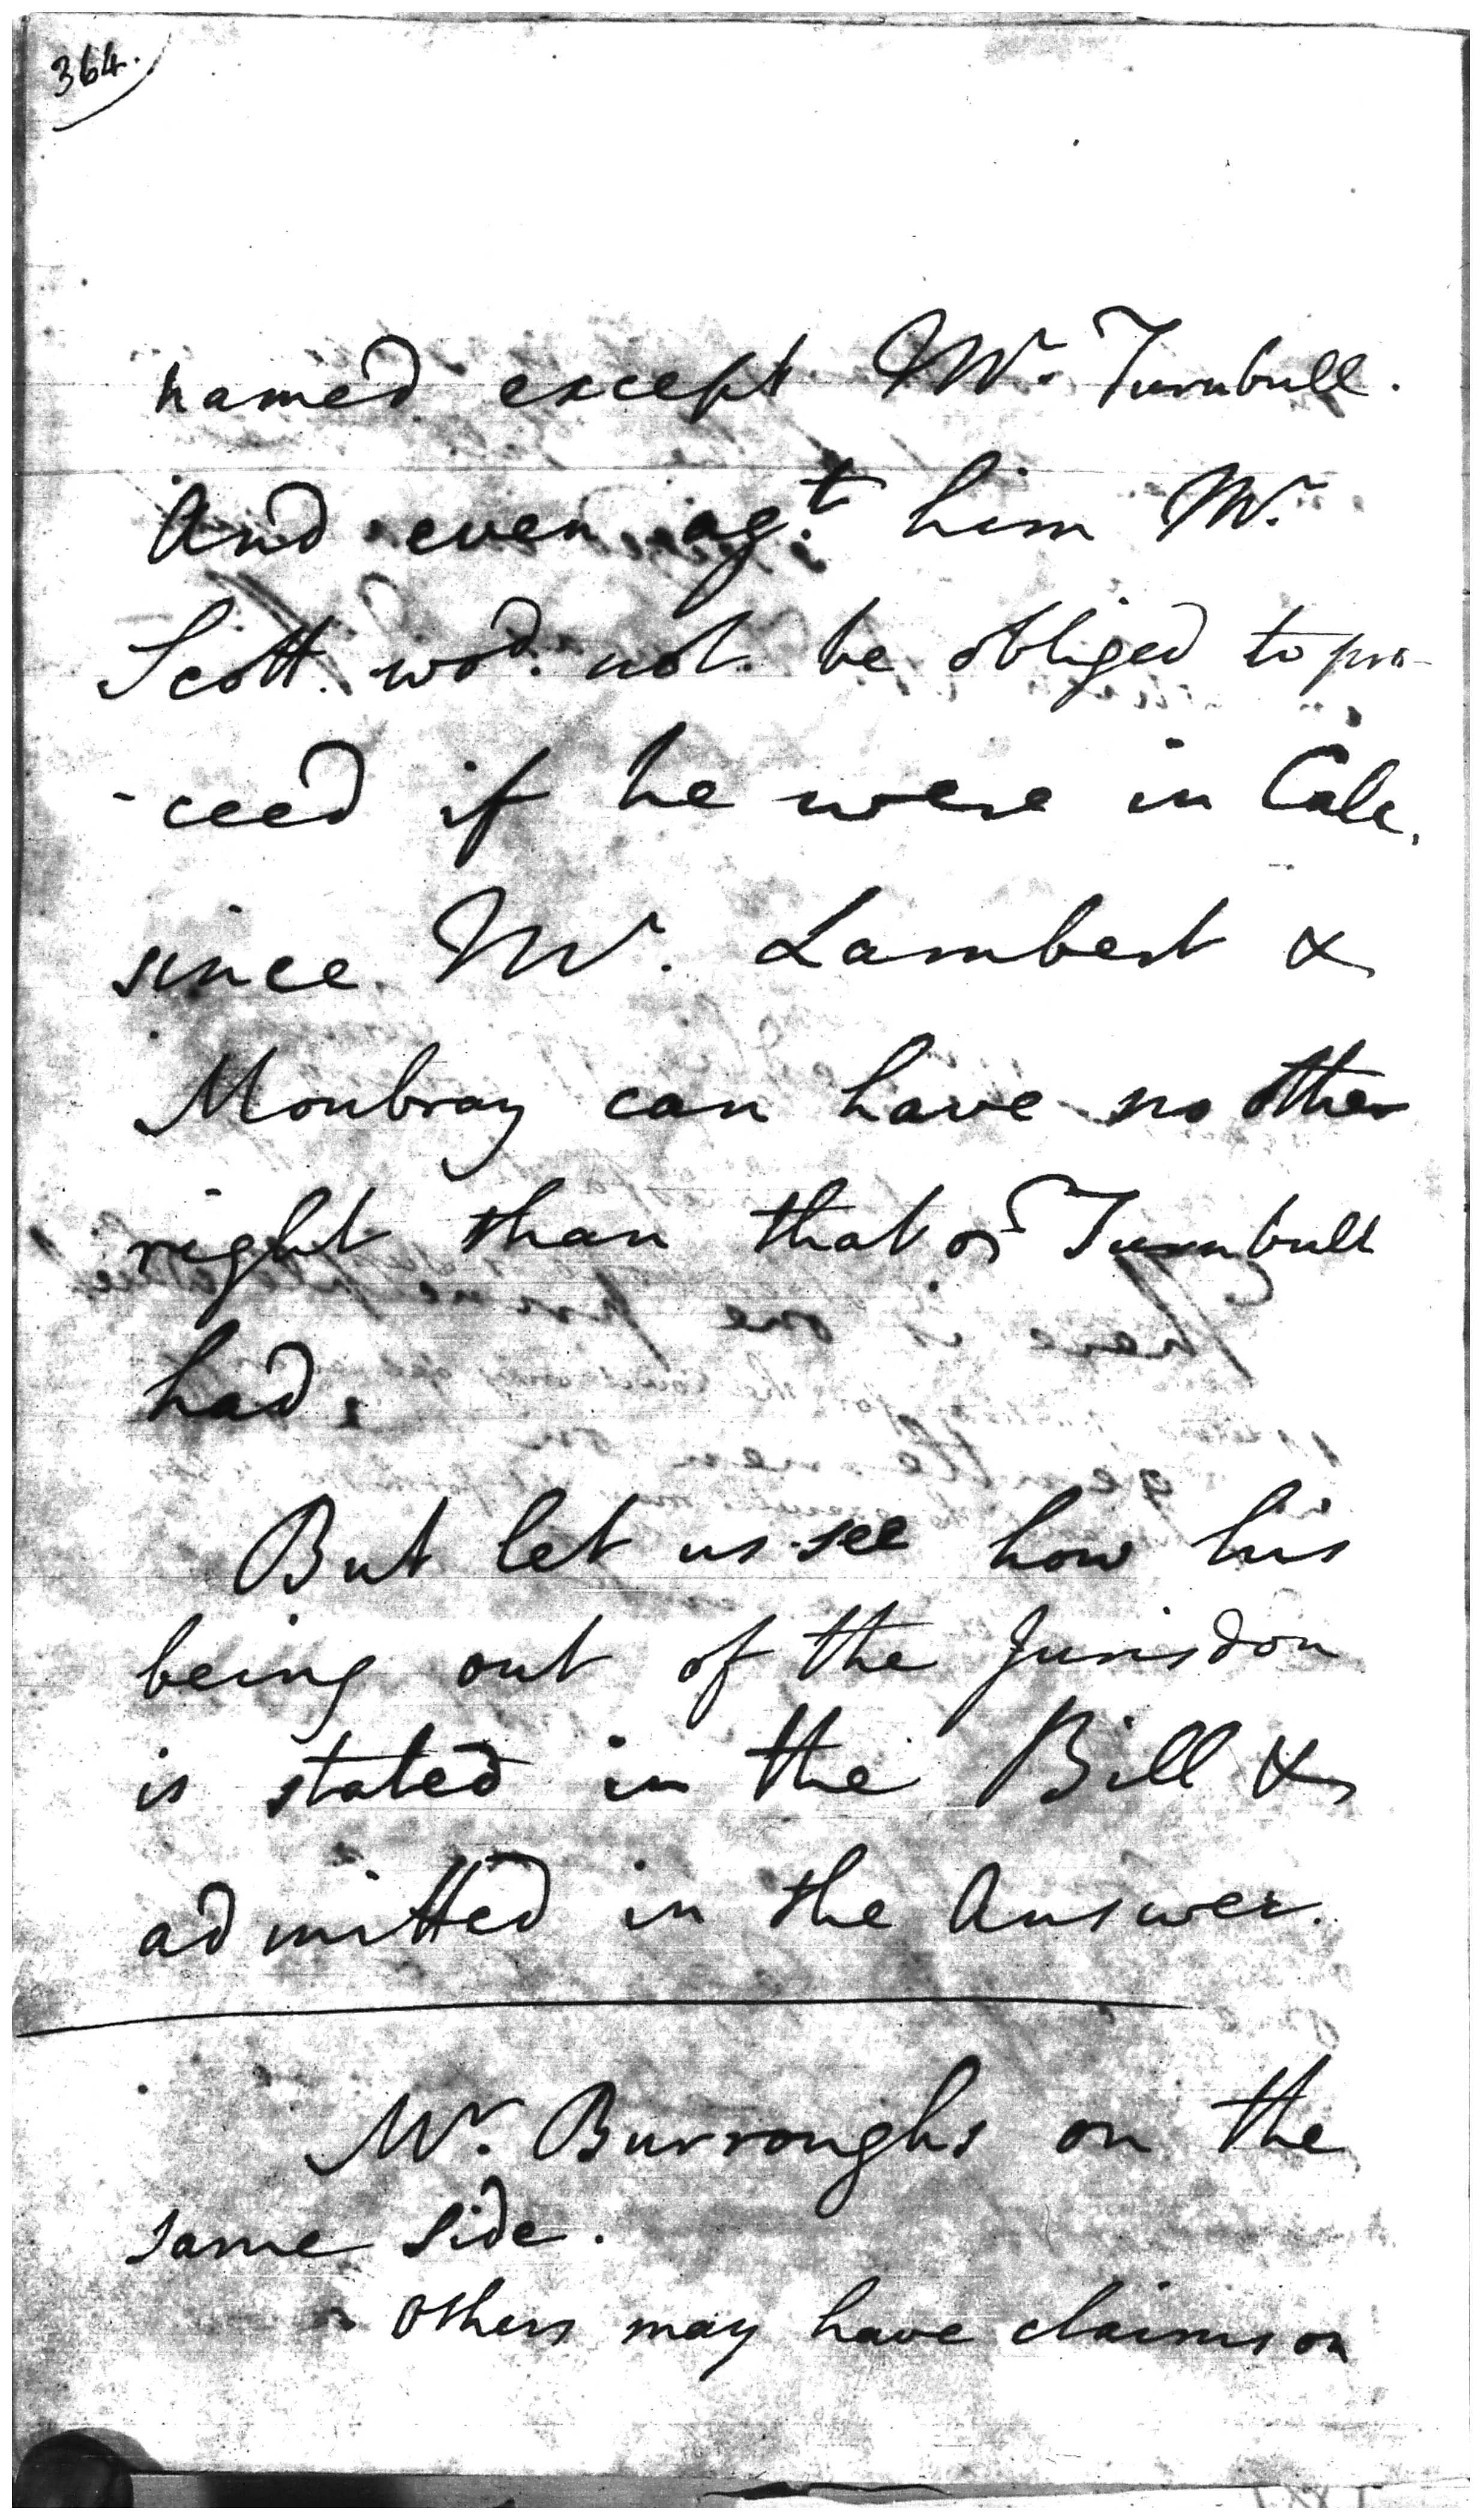 364.
named except Mr. Turnbull.
And even agt. him Mr.
Scott. wod. not be obliged to pro-
-ceed if he were in Calc.
since Mr. Lambert &
Moubray can have no other
right than that of Turnbull
had.
But let us see how his
being out of the Jurisdon
is stated in the Bill &
admitted in the Answer.
Mr. Burroughs on the
same side.
Others may have claims on